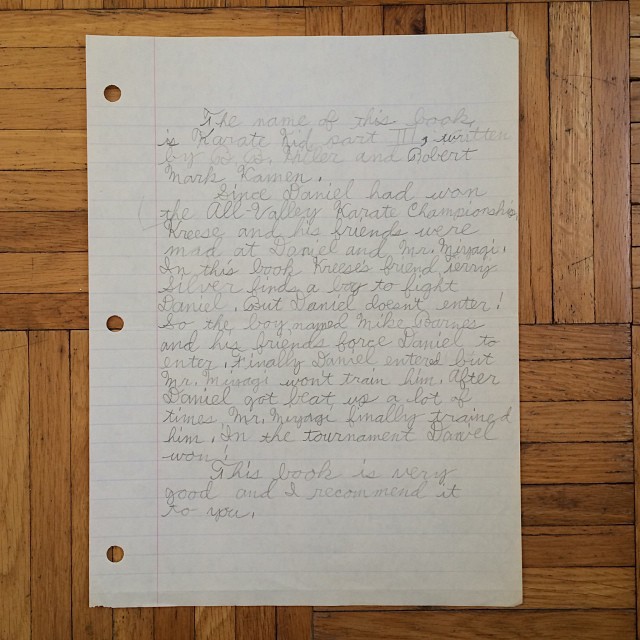 The name of this book
is Karate Kid part III, written
by B. B. Hiller and Robert
Mark Kamen.
Since Daniel had won
the All-Valley Karate Championship,
Kreese and his friends were
mad at Daniel and Mr. Miyagi.
In this book Kreese's friend Terry
Silver finds a boy to fight
Daniel. But Daniel doesn't enter!
So the boy named Mike Barnes
and his friends force Daniel to
enter. Finally Daniel entered but
Mr. Miyagi won't train him. After
Daniel got beat up a lot of
times Mr. Miyagi finally trained
him. In the tournament Daniel
won!
This book is very
good and I recommend it
to you.